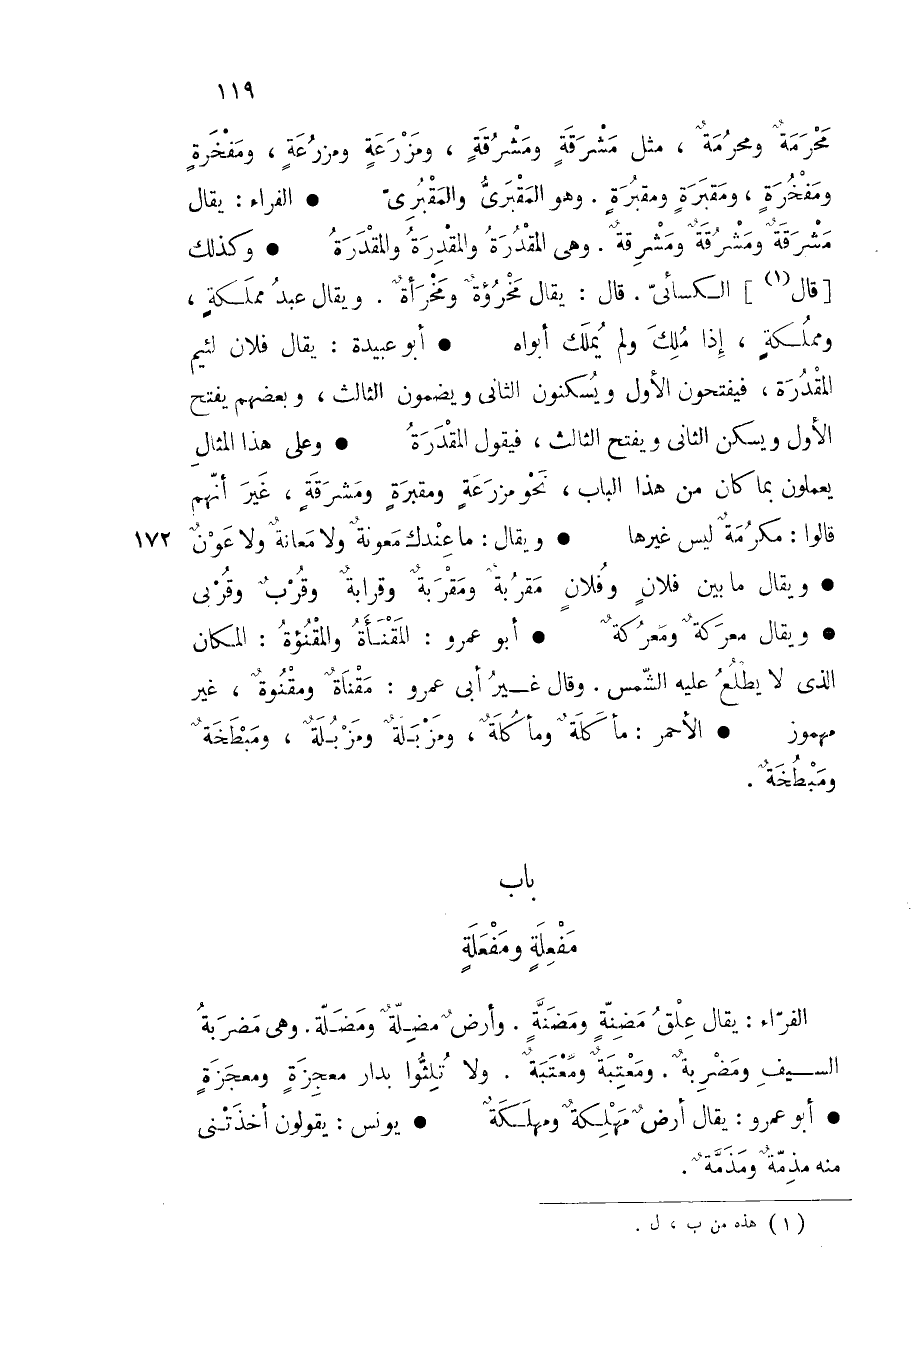 ١١٩
مَحْرَمَةٌ ومحرُمَةٌ ، مثل مَشْرَقَةٍ ومَشْرُقَةٍ ، ومَزْرَعَةٍ ومزرُعَةٍ ، ومَفْخَرةٍ
ومَفْخُرَةٍ ، ومَقبَرَةٍ ومقبُرَةٍ . وهو المَقْبَرىُّ والمَقْبُرِىّ ● الفراء : يقال
مَشْرَقَةٌ ومَشْرُقَةٌ ومَشْرِقةٌ . وهى المَقْدُرَةُ والمَقْدِرَةُ والمَقْدَرَةُ ● وكذلك
[ قال(١) ] الكسائىّ . قال : يقال مَخْرُؤَةٌ ومَخْرَأَةٌ . ويقال عبدُ مملَكةٍ ،
ومملُكةٍ ، إِذا مُلِكَ ولم يُملَك أبواه ● أبو عبيدة : يقال فلان لئيم
المَقْدُرَة ، فيفتحون الأول ويُسكنون الثانى ويضمون الثالث ، وبعضهم يفتح
الأول ويسكن الثانى ويفتح الثالث ، فيقول المَقْدَرَةُ ● وعلى هذا المثالِ
يعملون بما كان من هذا الباب ، نَحْو مزرَعَةٍ ومقبرَةٍ ومَشرقَةٍ ، غَيرَ أنّهم
قالوا : مكرُمَةٌ ليس غيرها ● ويقال : ما عِنْدك مَعونةٌ ولا مَعانةٌ ولا عَوْنٌ ١٧٢
● ويقال ما بين فلانٍ وفُلانٍ مَقرُبةٌ ومَقْرَبةٌ وقرابةٌ وقُرْبٌ وقُرْبى
● ويقال معرَكةٌ ومَعرُكةٌ ● أبو عمرو : المَقْنَأَةُ والمَقْنُؤَةُ : المكان
الذى لا يطْلُعُ عليه الشّمس . وقال غيرُ أبى عمرو : مَقْناةٌ ومقْنُوةٌ ، غير
مهموز ● الأحمر : مأكَلَةٌ ومأكُلَةٌ ، ومَزْبَلةٌ ومَزْبُلَةٌ ، ومَبْطَخَةٌ
ومَبْطُخَةٌ .
باب
مَفْعِلَةٍ ومَفْعَلَةٍ
الفرّاء : يقال عِلْقُ مَضِنَّةٍ ومَضَنَّةٍ . وأرضٌ مَضِلّةٌ ومَضَلّة . وهى مَضرَبةُ
السيفِ ومَضْرِبةٌ . ومَعْتِبَةٌ ومَعْتَبَةٌ . ولا تُلِثُّوا بدار معجِزَةٍ ومعجَزَةٍ
● أبو عمرو : يقال أرضٌ مَهْلِكةٌ ومهلَكةٌ ● يونس : يقولون أخذَتْنى
منه مذِمّةٌ ومَذَمَّةٌ .
(١) هذه من ب ، ل .